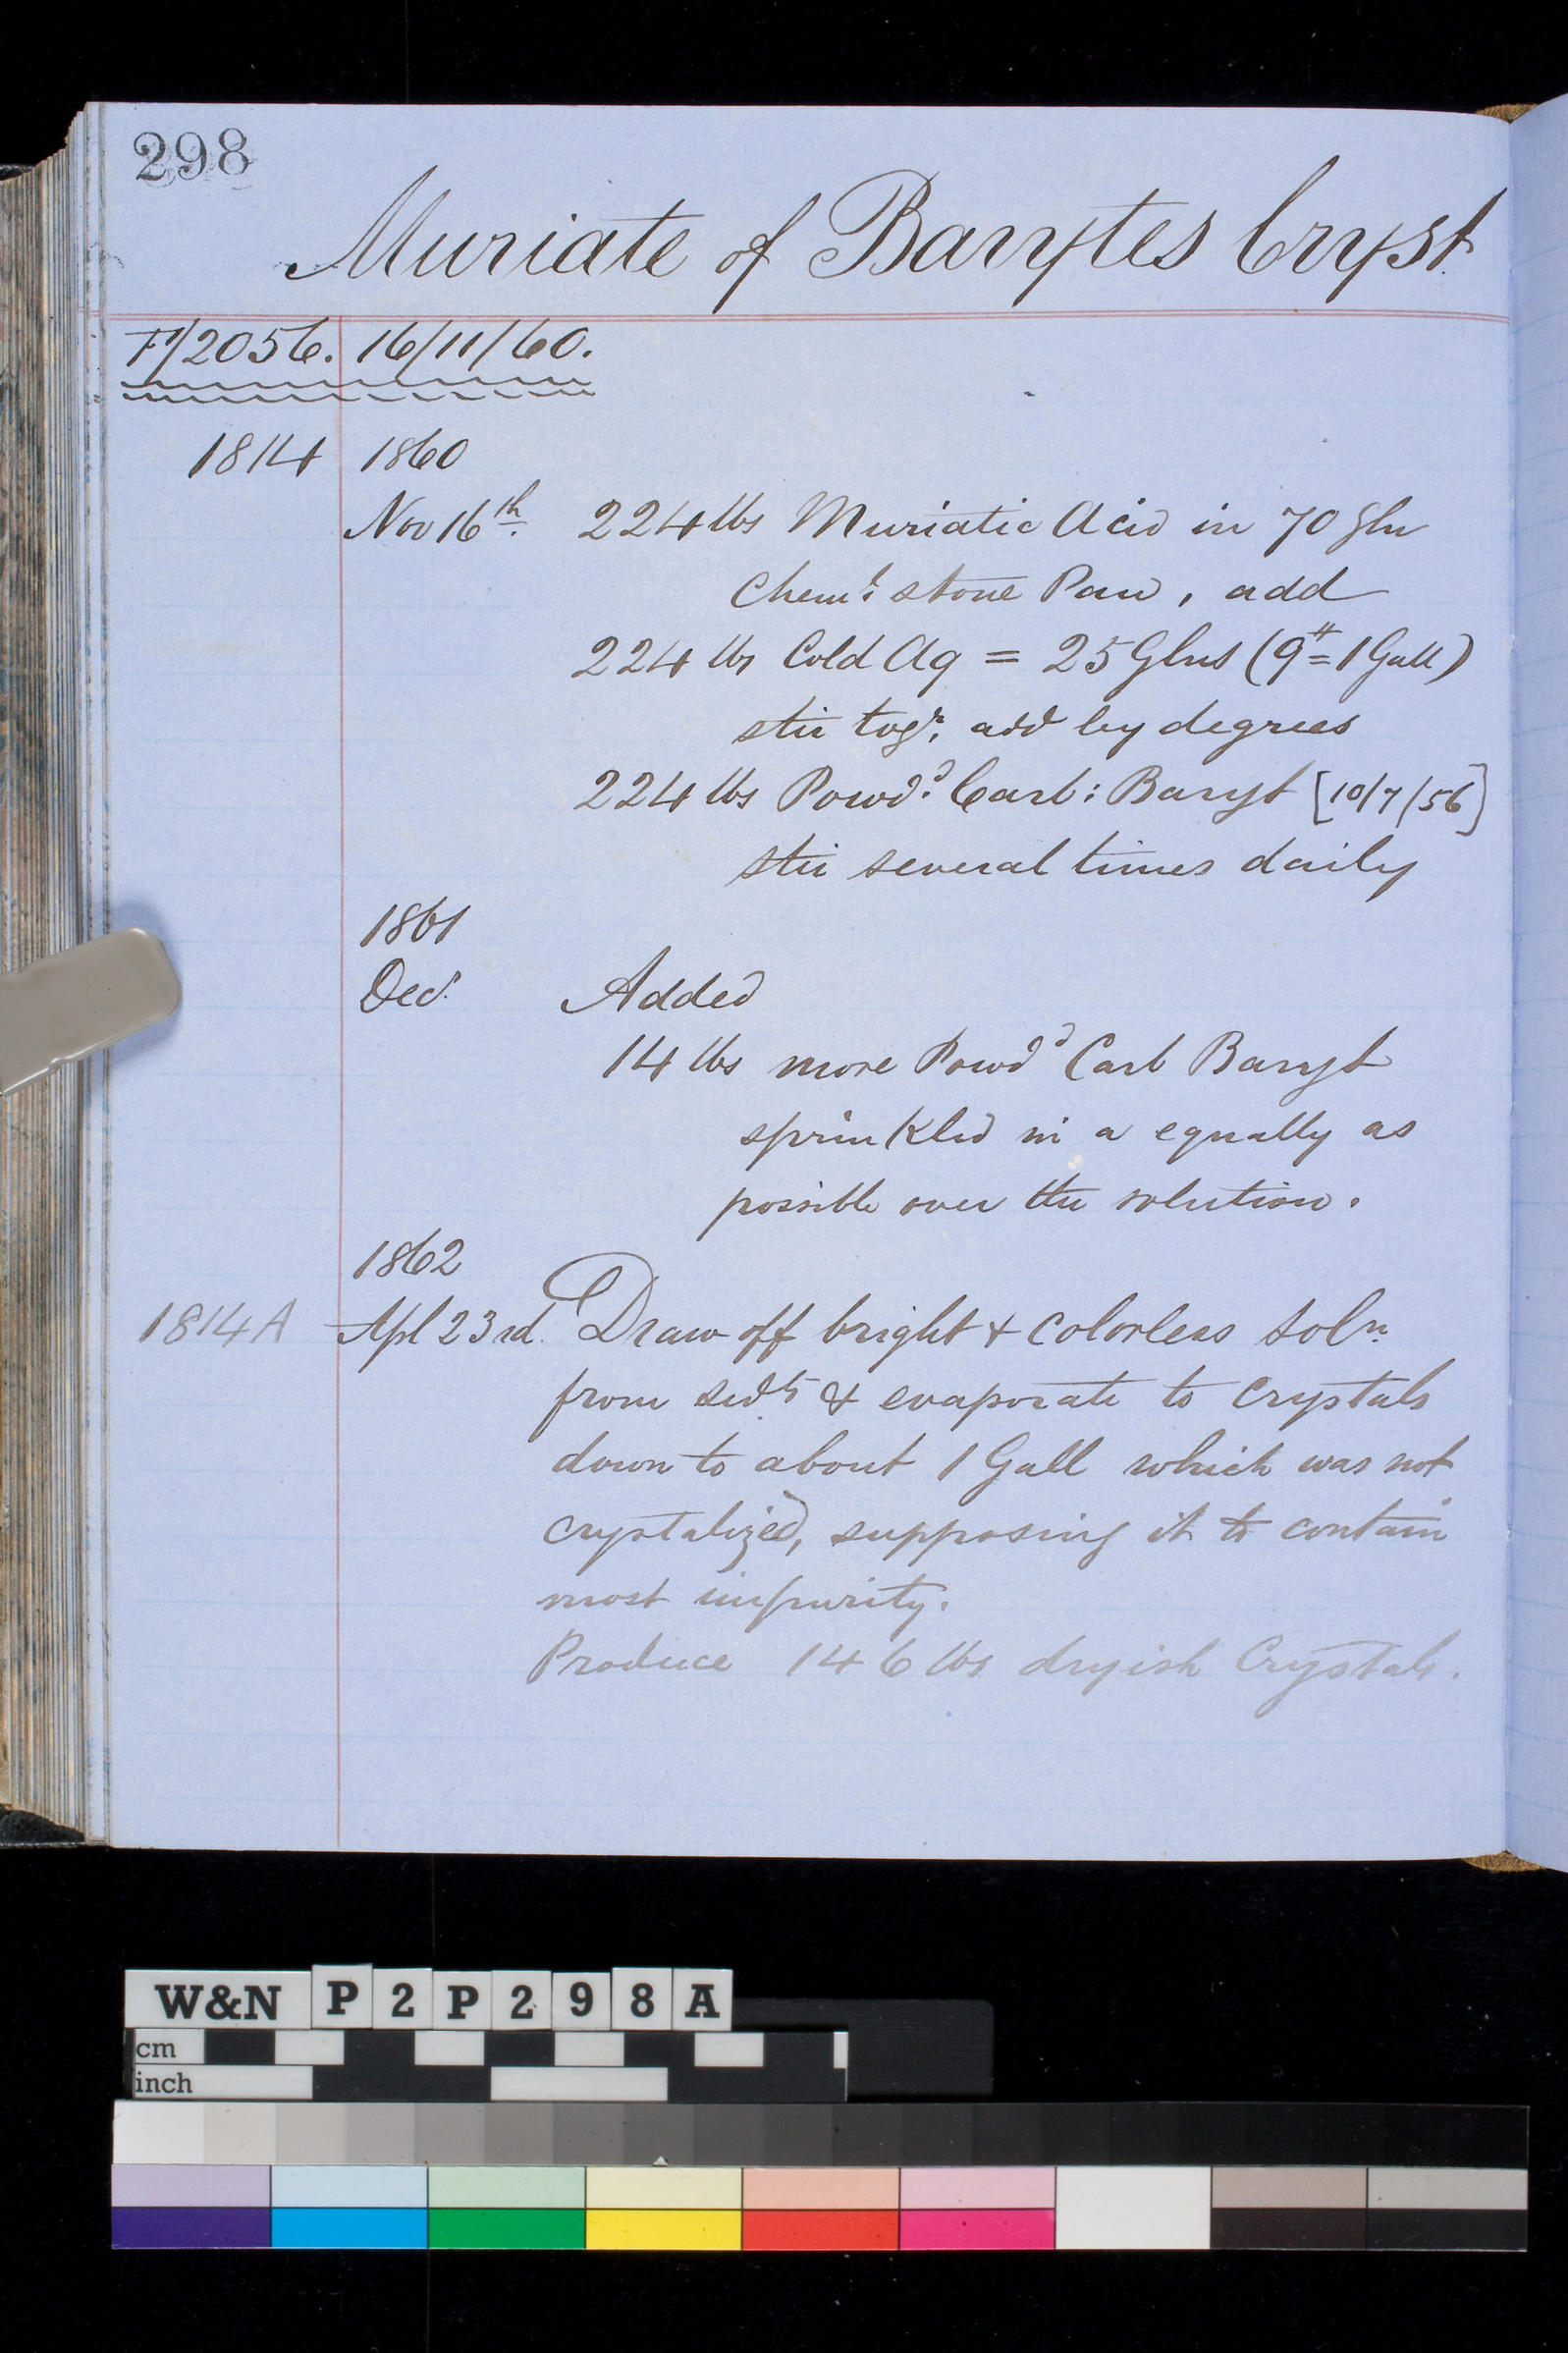 298
Muriate of Barytes Cryst.
F/2056. 16/11/60.
1814 1860
Nov 16th 224 lbs Muriatic Acid in 70 Gln
Cheml: stone Pan, add
224 lbs Cold Aq = 25 Glns (9# = 1 Gall)
stir togr, add by degrees
224 lbs Powd: Carb: Baryt [10/7/56]
stir several times daily
1861
Decr Added
14 lbs more Powd Carb Baryt
sprinkled in a equally as
possible over the solution.
1862
1814A Apl 23rd. Draw off bright & colorless soln
from sedt & evaporate to crystals
down to about 1 Gall which was not
crystalized, supposing it to contain
most impurity.
Produce 146 lbs dryish Crystals.
W&N P2P298A
cm
inch